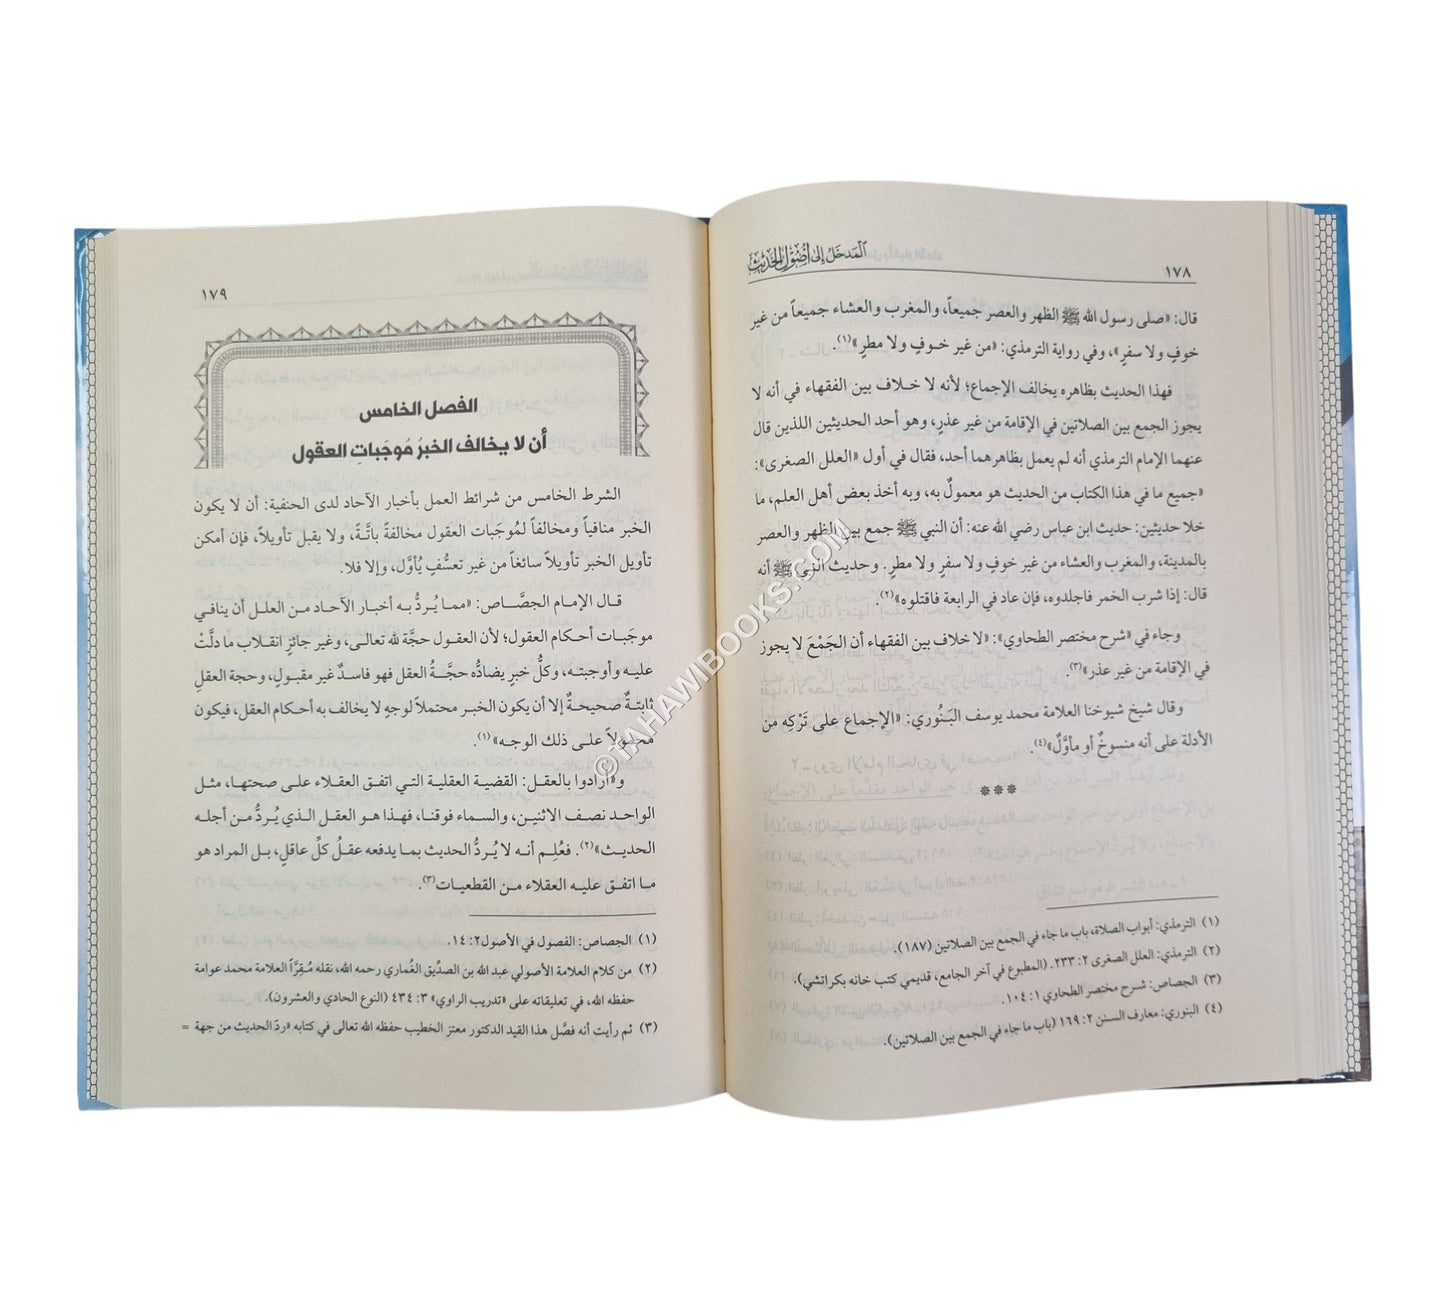 ١٧٨
المدخل إلى أصول الحديث
قال: «صلى رسول الله ﷺ الظهر والعصر جميعاً، والمغرب والعشاء جميعاً من غير
خوفٍ ولا سفرٍ»، وفي رواية الترمذي: «من غير خوفٍ ولا مطرٍ»(١).
فهذا الحديث بظاهره يخالف الإجماع؛ لأنه لا خلاف بين الفقهاء في أنه لا
يجوز الجمع بين الصلاتين في الإقامة من غير عذرٍ، وهو أحد الحديثين اللذين قال
عنهما الإمام الترمذي أنه لم يعمل بظاهرهما أحد، فقال في أول «العلل الصغرى»:
«جميع ما في هذا الكتاب من الحديث هو معمولٌ به، وبه أخذ بعض أهل العلم، ما
خلا حديثين: حديث ابن عباس رضي الله عنه: أن النبي ﷺ جمع بين الظهر والعصر
بالمدينة، والمغرب والعشاء من غير خوفٍ ولا سفرٍ ولا مطرٍ. وحديث النبي ﷺ أنه
قال: إذا شرب الخمر فاجلدوه، فإن عاد في الرابعة فاقتلوه»(٢).
وجاء في «شرح مختصر الطحاوي»: «لا خلاف بين الفقهاء أن الجَمْعَ لا يجوز
في الإقامة من غير عذر»(٣).
وقال شيخ شيوخنا العلامة محمد يوسف البَنُوري: «الإجماع على تَرْكِه من
الأدلة على أنه منسوخٌ أو مأوَّلٌ»(٤).
***
(١) الترمذي: أبواب الصلاة، باب ما جاء في الجمع بين الصلاتين (١٨٧).
(٢) الترمذي: العلل الصغرى ٢: ٢٣٣. (المطبوع في آخر الجامع، قديمي كتب خانه بكراتشي).
(٣) الجصاص: شرح مختصر الطحاوي ١: ١٠٤.
(٤) البنوري: معارف السنن ٢: ١٦٩ (باب ما جاء في الجمع بين الصلاتين).
١٧٩
الفصل الخامس
أن لا يخالف الخبرُ مُوجَباتِ العقول
الشرط الخامس من شرائط العمل بأخبار الآحاد لدى الحنفية: أن لا يكون
الخبر منافياً ومخالفاً لمُوجَبات العقول مخالفةً باتَّةً، ولا يقبل تأويلاً، فإن أمكن
تأويل الخبر تأويلاً سائغاً من غير تعسُّفٍ يُأوَّل، وإلا فلا.
قال الإمام الجصَّاص: «مما يُردُّ به أخبار الآحاد من العلل أن ينافي
موجَبات أحكام العقول؛ لأن العقول حجَّة لله تعالى، وغير جائزٍ انقلاب ما دلَّتْ
عليه وأوجبته، وكلُّ خبرٍ يضادُّه حجَّةُ العقل فهو فاسدٌ غير مقبولٍ، وحجة العقلِ
ثابتةٌ صحيحةٌ إلا أن يكون الخبر محتملاً لوجهٍ لا يخالف به أحكام العقل، فيكون
محمولاً على ذلك الوجه»(١).
و«أرادوا بالعقل: القضية العقلية التي اتفق العقلاء على صحتها، مثل
الواحد نصف الاثنين، والسماء فوقنا، فهذا هو العقل الذي يُردُّ من أجله
الحديث»(٢). فعُلِم أنه لا يُردُّ الحديث بما يدفعه عقلُ كلِّ عاقلٍ، بل المراد هو
ما اتفق عليه العقلاء من القطعيات(٣).
(١) الجصاص: الفصول في الأصول ٢: ١٤.
(٢) من كلام العلامة الأصولي عبد الله بن الصدِّيق الغُماري رحمه الله، نقله مُقِرَّاً العلامة محمد عوامة
حفظه الله، في تعليقاته على «تدريب الراوي» ٣: ٤٣٤ (النوع الحادي والعشرون).
(٣) ثم رأيت أنه فصَّل هذا القيد الدكتور معتز الخطيب حفظه الله تعالى في كتابه «ردّ الحديث من جهة =
©TAHAWIBOOKS.COM